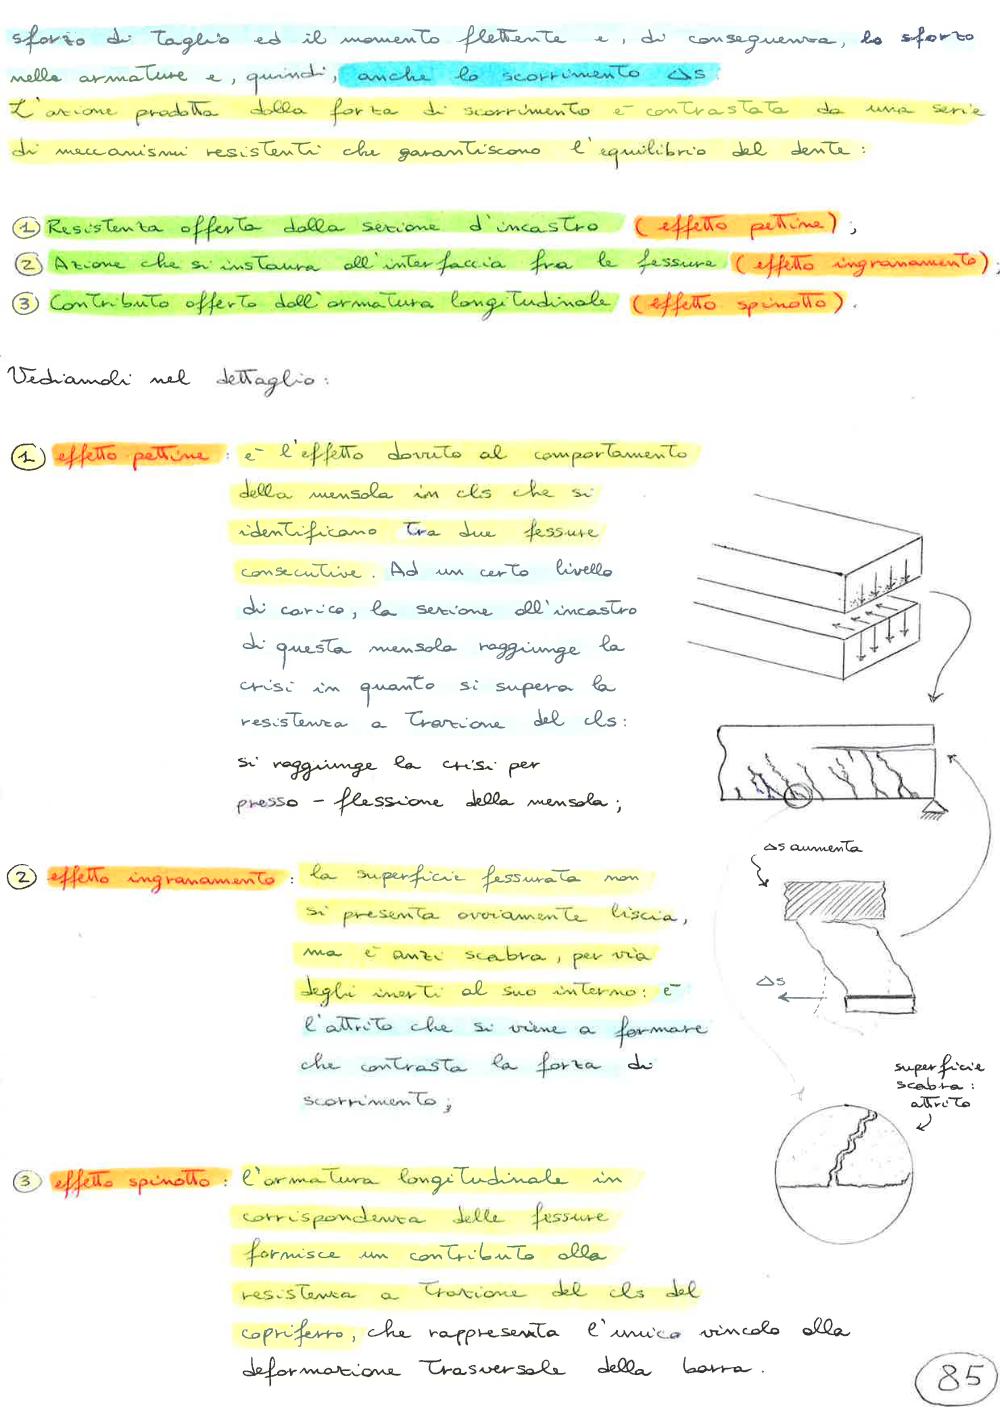 sforzo di taglio ed il momento flettente e, di conseguenza, lo sforzo
nelle armature e, quindi, anche lo scorrimento Δs.
L'azione prodotta dalla forza di scorrimento è contrastata da una serie
di meccanismi resistenti che garantiscono l'equilibrio del dente:
① Resistenza offerta dalla sezione d'incastro (effetto pettine);
② Azione che si instaura all'interfaccia fra le fessure (effetto ingranamento);
③ Contributo offerto dall'armatura longitudinale (effetto spinotto).
Vediamoli nel dettaglio:
① effetto pettine: è l'effetto dovuto al comportamento
della mensola in cls che si
identificano tra due fessure
consecutive. Ad un certo livello
di carico, la sezione all'incastro
di questa mensola raggiunge la
crisi in quanto si supera la
resistenza a trazione del cls:
si raggiunge la crisi per
presso-flessione della mensola;
Δs aumenta
② effetto ingranamento: la superficie fessurata non
si presenta ovviamente liscia,
ma è anzi scabra, per via
degli inerti al suo interno: è
l'attrito che si viene a formare
che contrasta la forza di
scorrimento;
Δs
superficie
scabra:
attrito
③ effetto spinotto: l'armatura longitudinale in
corrispondenza delle fessure
fornisce un contributo alla
resistenza a trazione del cls del
copriferro, che rappresenta l'unico vincolo alla
deformazione trasversale della barra.
85